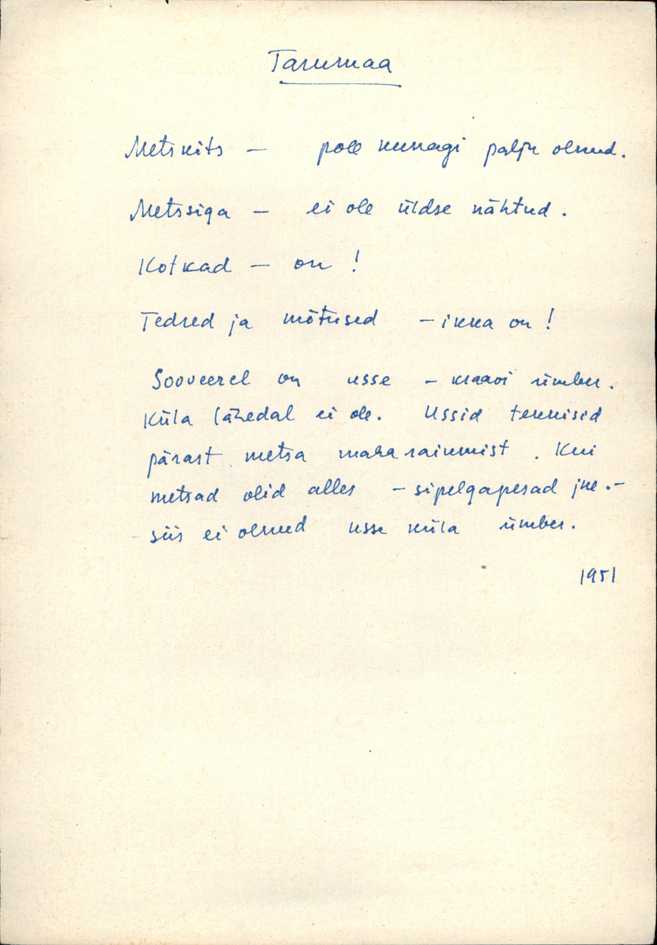 Tarumaa
Metskits — pole kunagi palju olnud.
Metssiga — ei ole üldse nähtud.
Kotkad — on!
Tedred ja mõtused — ikka on!
Sooveerel on usse — kraavi ümber.
Küla lähedal ei ole. Ussid tekkisid
pärast metsa maha raiumist. Kui
metsad olid alles — sipelgapesad jne. —
siis ei olnud usse küla ümber.
1951